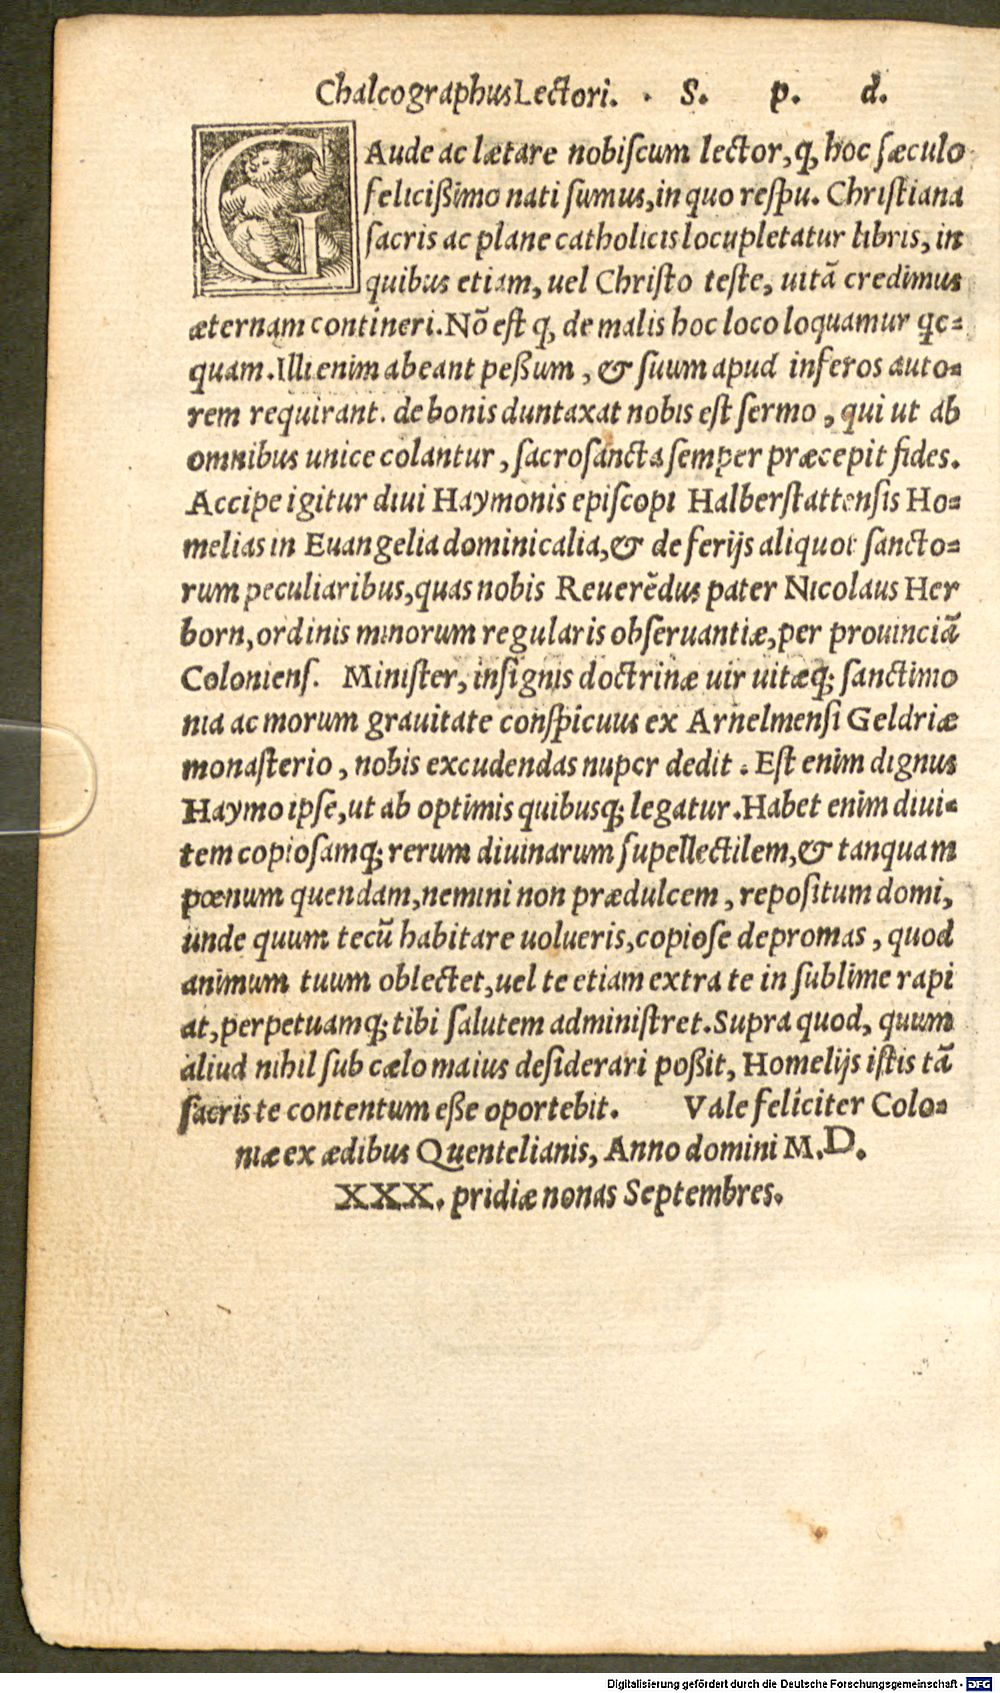 Chalcographus Lectori. . S. p. d.
GAude ac lætare nobiſcum lector, ꝙ hoc ſæculo
felicißimo nati ſumus, in quo reſpu. Chriſtiana
ſacris ac plane catholicis locupletatur libris, in
quibus etiam, uel Chriſto teſte, uitã credimus
æternam contineri. Nõ eſt ꝙ de malis hoc loco loquamur qc=
quam. Illi enim abeant peßum, & ſuum apud inferos auto=
rem requirant. de bonis duntaxat nobis eſt ſermo, qui ut ab
omnibus unice colantur, ſacroſancta ſemper præcepit fides.
Accipe igitur diui Haymonis epiſcopi Halberſtattenſis Ho=
melias in Euangelia dominicalia, & de ferijs aliquot ſancto=
rum peculiaribus, quas nobis Reuerẽdus pater Nicolaus Her
born, ordinis minorum regularis obſeruantiæ, per prouinciã
Colonienſ. Miniſter, inſignis doctrinæ uir uitæq; ſanctimo
nia ac morum grauitate conſpicuus ex Arnelmenſi Geldriæ
monaſterio, nobis excudendas nuper dedit. Eſt enim dignus
Haymo ipſe, ut ab optimis quibusq; legatur. Habet enim diui=
tem copioſamq; rerum diuinarum ſupellectilem, & tanquam
pœnum quendam, nemini non prædulcem, repoſitum domi,
unde quum tecũ habitare uolueris, copioſe depromas, quod
animum tuum oblectet, uel te etiam extra te in ſublime rapi
at, perpetuamq; tibi ſalutem adminiſtret. Supra quod, quum
aliud nihil ſub cælo maius deſiderari poßit, Homelijs iſtis tã
ſacris te contentum eße oportebit. Vale feliciter Colo=
niæ ex ædibus Quentelianis, Anno domini M.D.
XXX. pridiæ nonas Septembres.
Digitalisierung gefördert durch die Deutsche Forschungsgemeinschaft - DFG